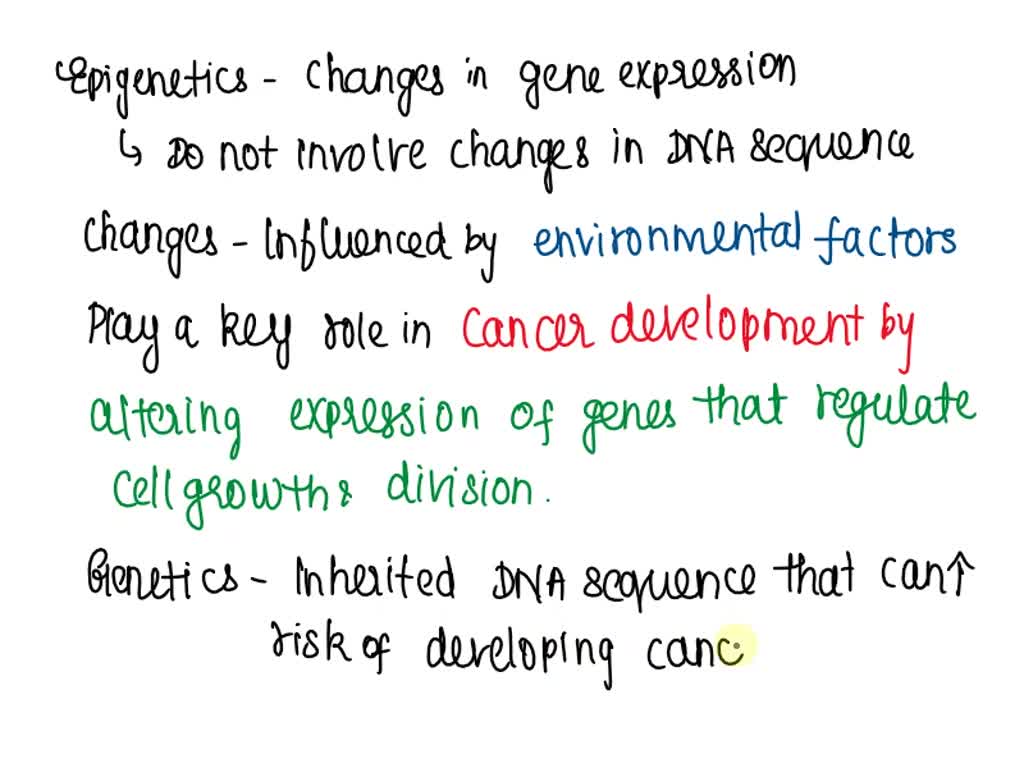 Epigenetics - changes in gene expression
↳ Do not involve changes in DNA sequence
Changes - Influenced by environmental factors
Play a key role in cancer development by
altering expression of genes that regulate
cell growth & division.
Genetics - Inherited DNA sequence that can ↑
risk of developing canc